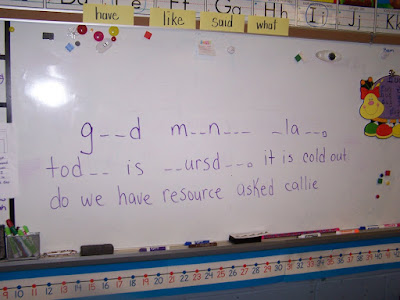 Hh Ii Jj Kk
have like said what
g__d m__n___ _la__.
tod__ is __ursd__. it is cold out
do we have resource asked callie
10 11 12 13 14 15 16 17 18 19 20 21 22 23 24 25 26 27 28 29 30 31 32 33 34 35 36 37 38 39 40